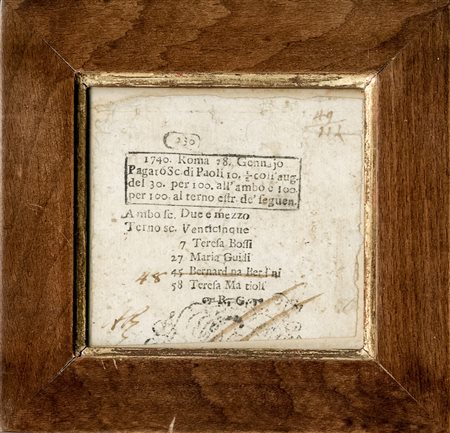 230
49
112
1740. Roma 28. Gennajo
Pagarò Sc. di Paoli 10. ½ coll'aug.
del 30. per 100. all'ambo e 100.
per 100. al terno estr. de' seguen.
Ambo sc. Due e mezzo
Terno sc. Venticinque
7 Teresa Bossi
27 Maria Guidi
48 45 Bernardina Berlini
58 Teresa Matioli
R. G.